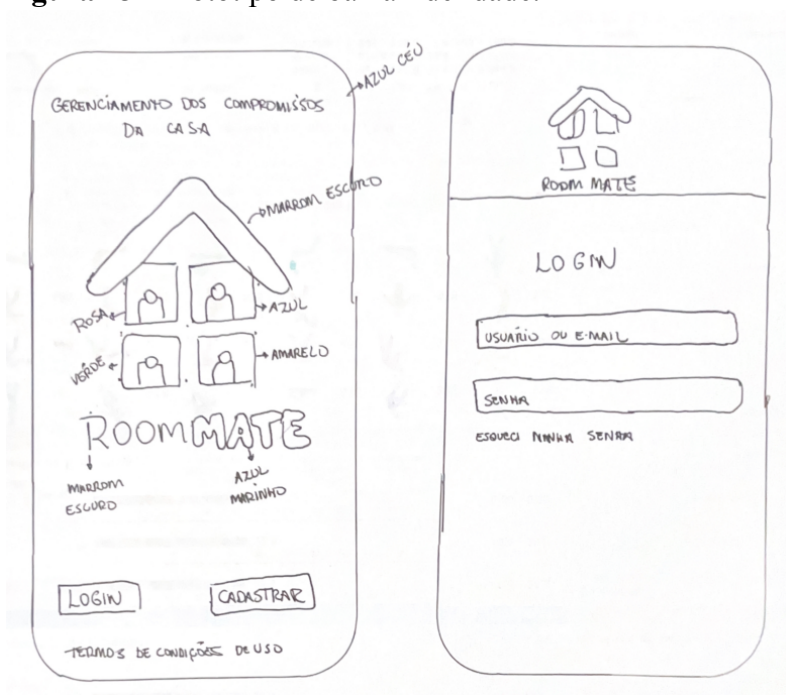 GERENCIAMENTO DOS COMPROMISSOS
DA CASA
AZUL CÉU
MARROM ESCURO
ROSA
AZUL
VERDE
AMARELO
ROOMMATE
MARROM
ESCURO
AZUL
MARINHO
LOGIN
CADASTRAR
TERMOS DE CONDIÇÕES DE USO
ROOM MATE
LOGIN
USUÁRIO OU E-MAIL
SENHA
ESQUECI MINHA SENHA